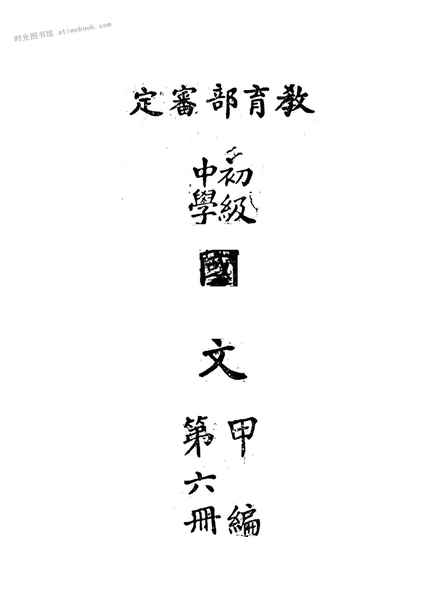 时光图书馆 atimebook.com
教育部審定
初級
中學
國
文
甲編
第六冊